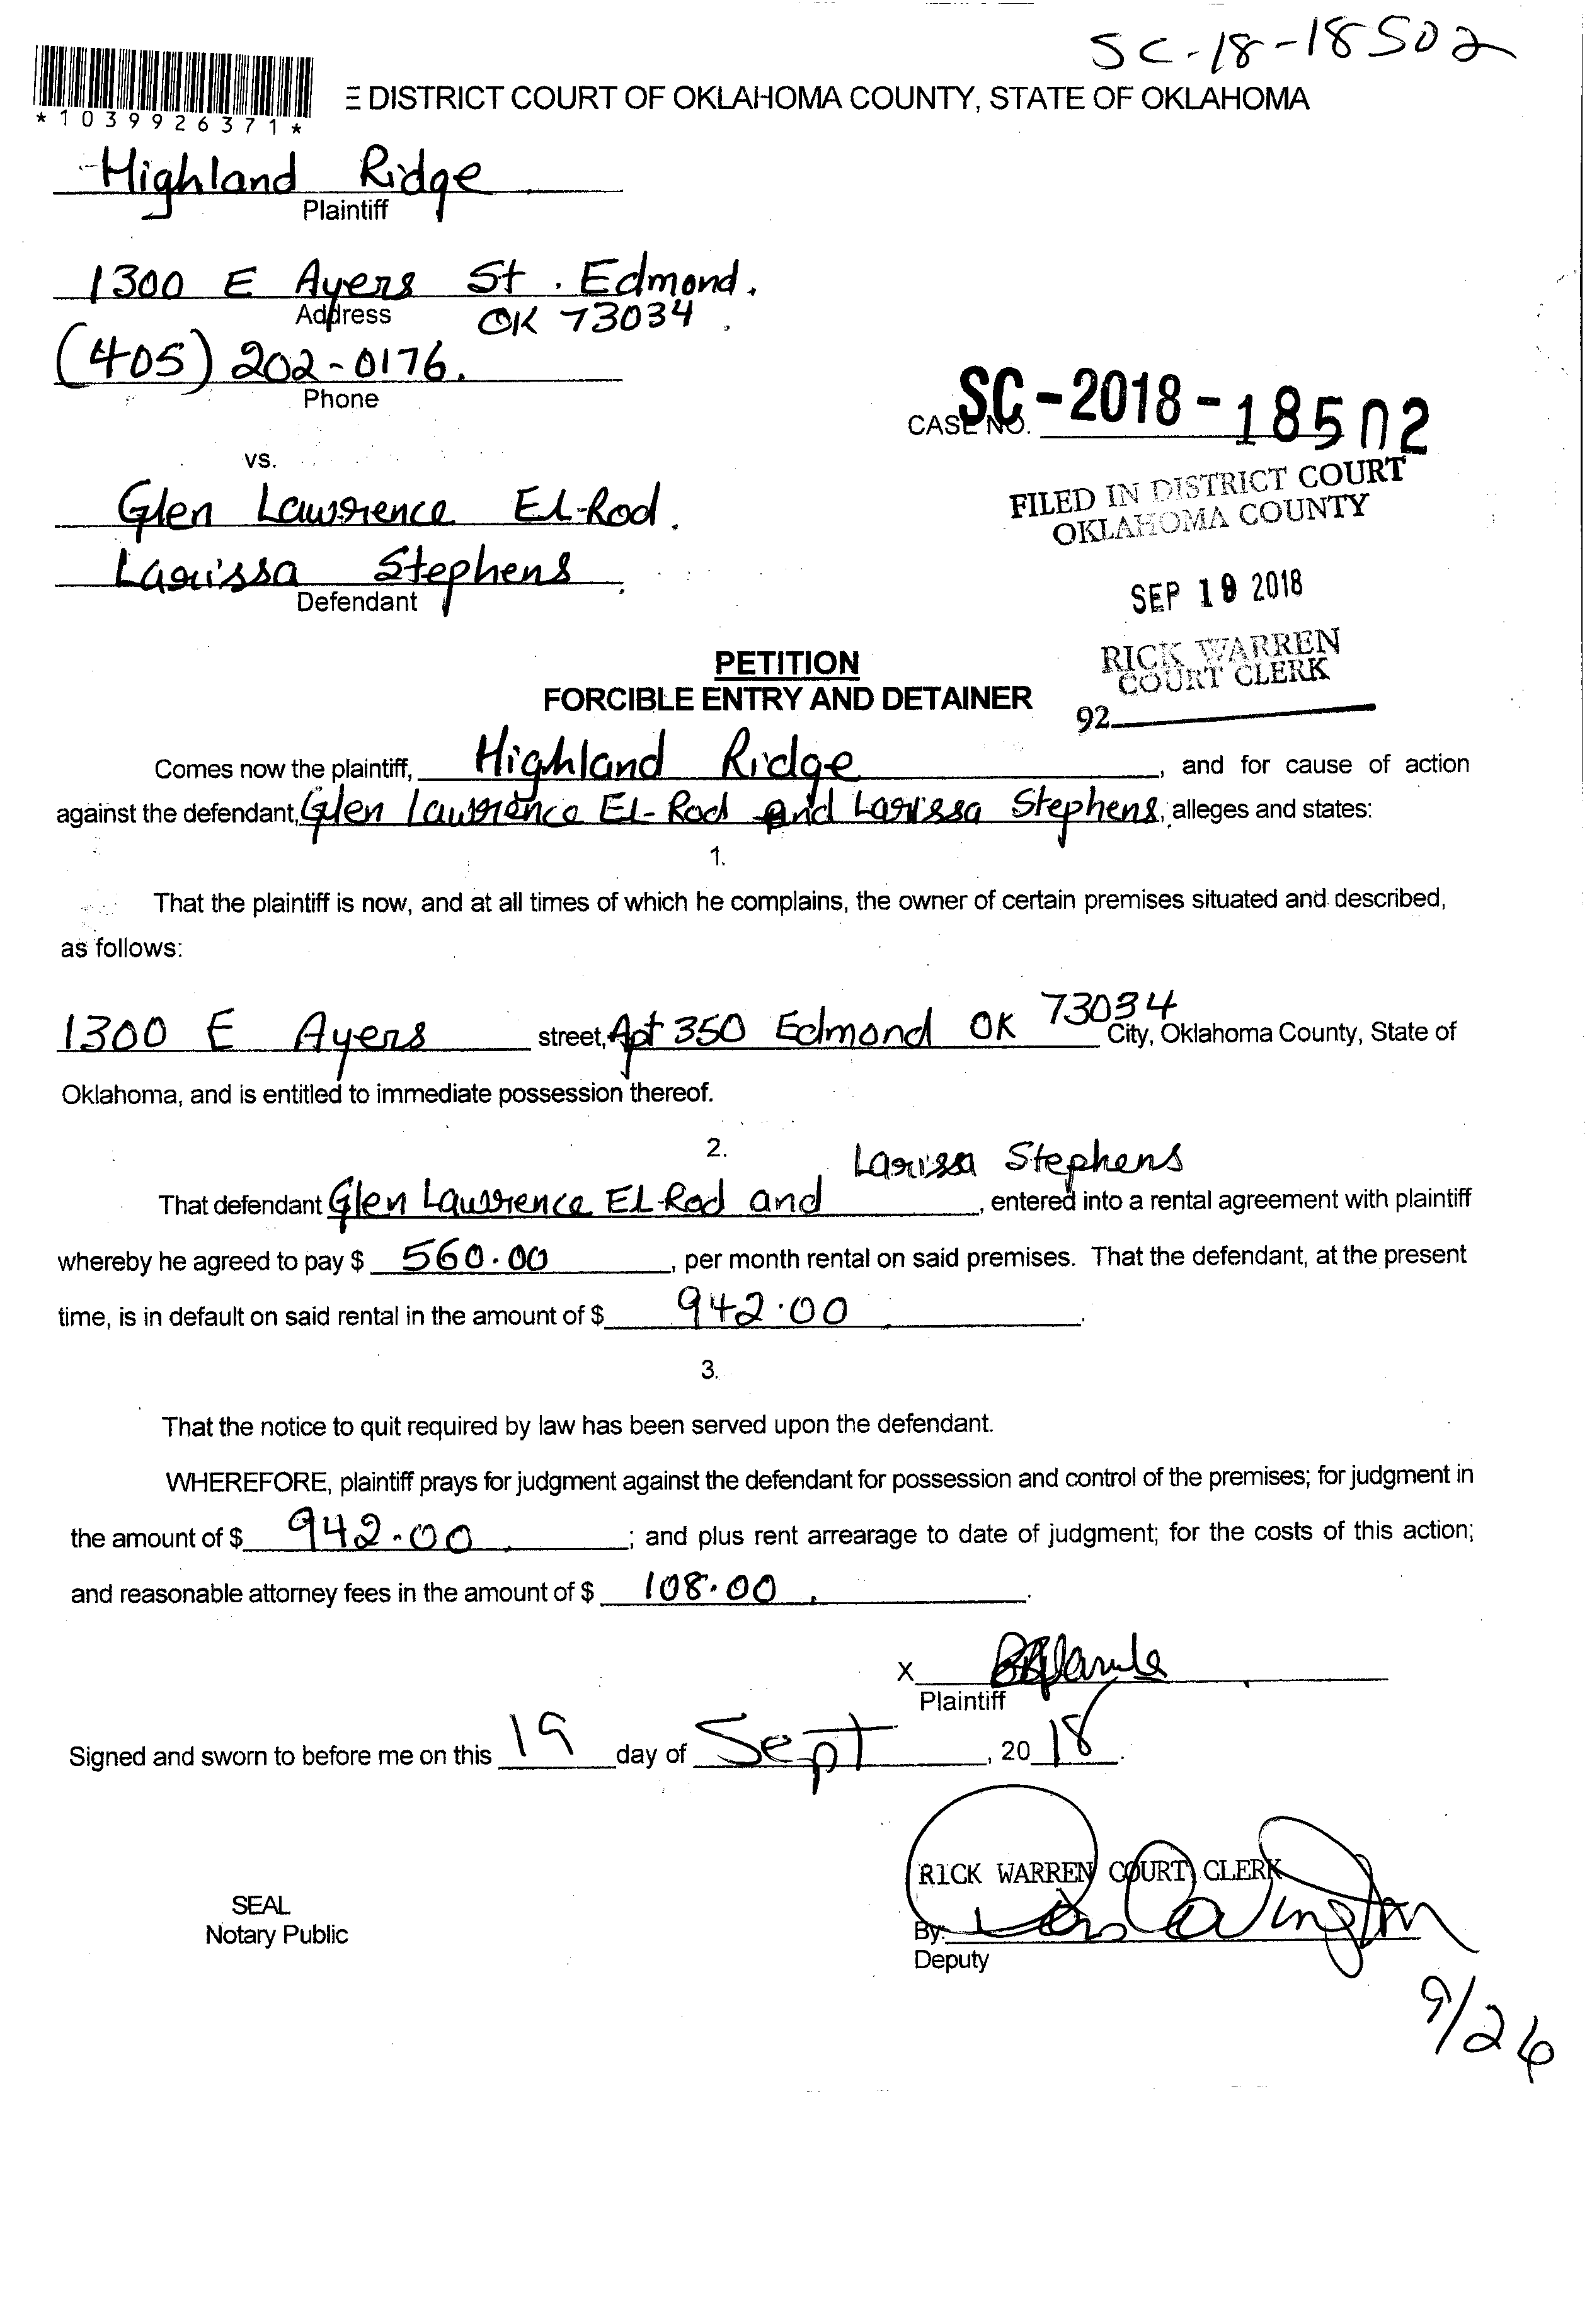 SC-18-18502
*1039926371*
E DISTRICT COURT OF OKLAHOMA COUNTY, STATE OF OKLAHOMA
Highland Ridge
Plaintiff
1300 E Ayers St. Edmond.
Address OK 73034.
(405) 202-0176.
Phone
CASE NO. SC-2018-18502
vs.
FILED IN DISTRICT COURT
OKLAHOMA COUNTY
Glen Lawrence El-Rod.
Larissa Stephens.
Defendant
SEP 19 2018
RICK WARREN
COURT CLERK
92
PETITION
FORCIBLE ENTRY AND DETAINER
Comes now the plaintiff, Highland Ridge, and for cause of action
against the defendant, Glen Lawrence El-Rod and Larissa Stephens, alleges and states:
1.
That the plaintiff is now, and at all times of which he complains, the owner of certain premises situated and described,
as follows:
1300 E Ayers street, Apt 350 Edmond OK 73034 City, Oklahoma County, State of
Oklahoma, and is entitled to immediate possession thereof.
2.
Larissa Stephens
That defendant Glen Lawrence El-Rod and, entered into a rental agreement with plaintiff
whereby he agreed to pay $ 560.00, per month rental on said premises. That the defendant, at the present
time, is in default on said rental in the amount of $ 942.00.
3.
That the notice to quit required by law has been served upon the defendant.
WHEREFORE, plaintiff prays for judgment against the defendant for possession and control of the premises; for judgment in
the amount of $ 942.00; and plus rent arrearage to date of judgment; for the costs of this action;
and reasonable attorney fees in the amount of $ 108.00.
X
Plaintiff
Signed and sworn to before me on this 19 day of Sept, 2018.
RICK WARREN COURT CLERK
SEAL
Notary Public
By:
Deputy
9/26